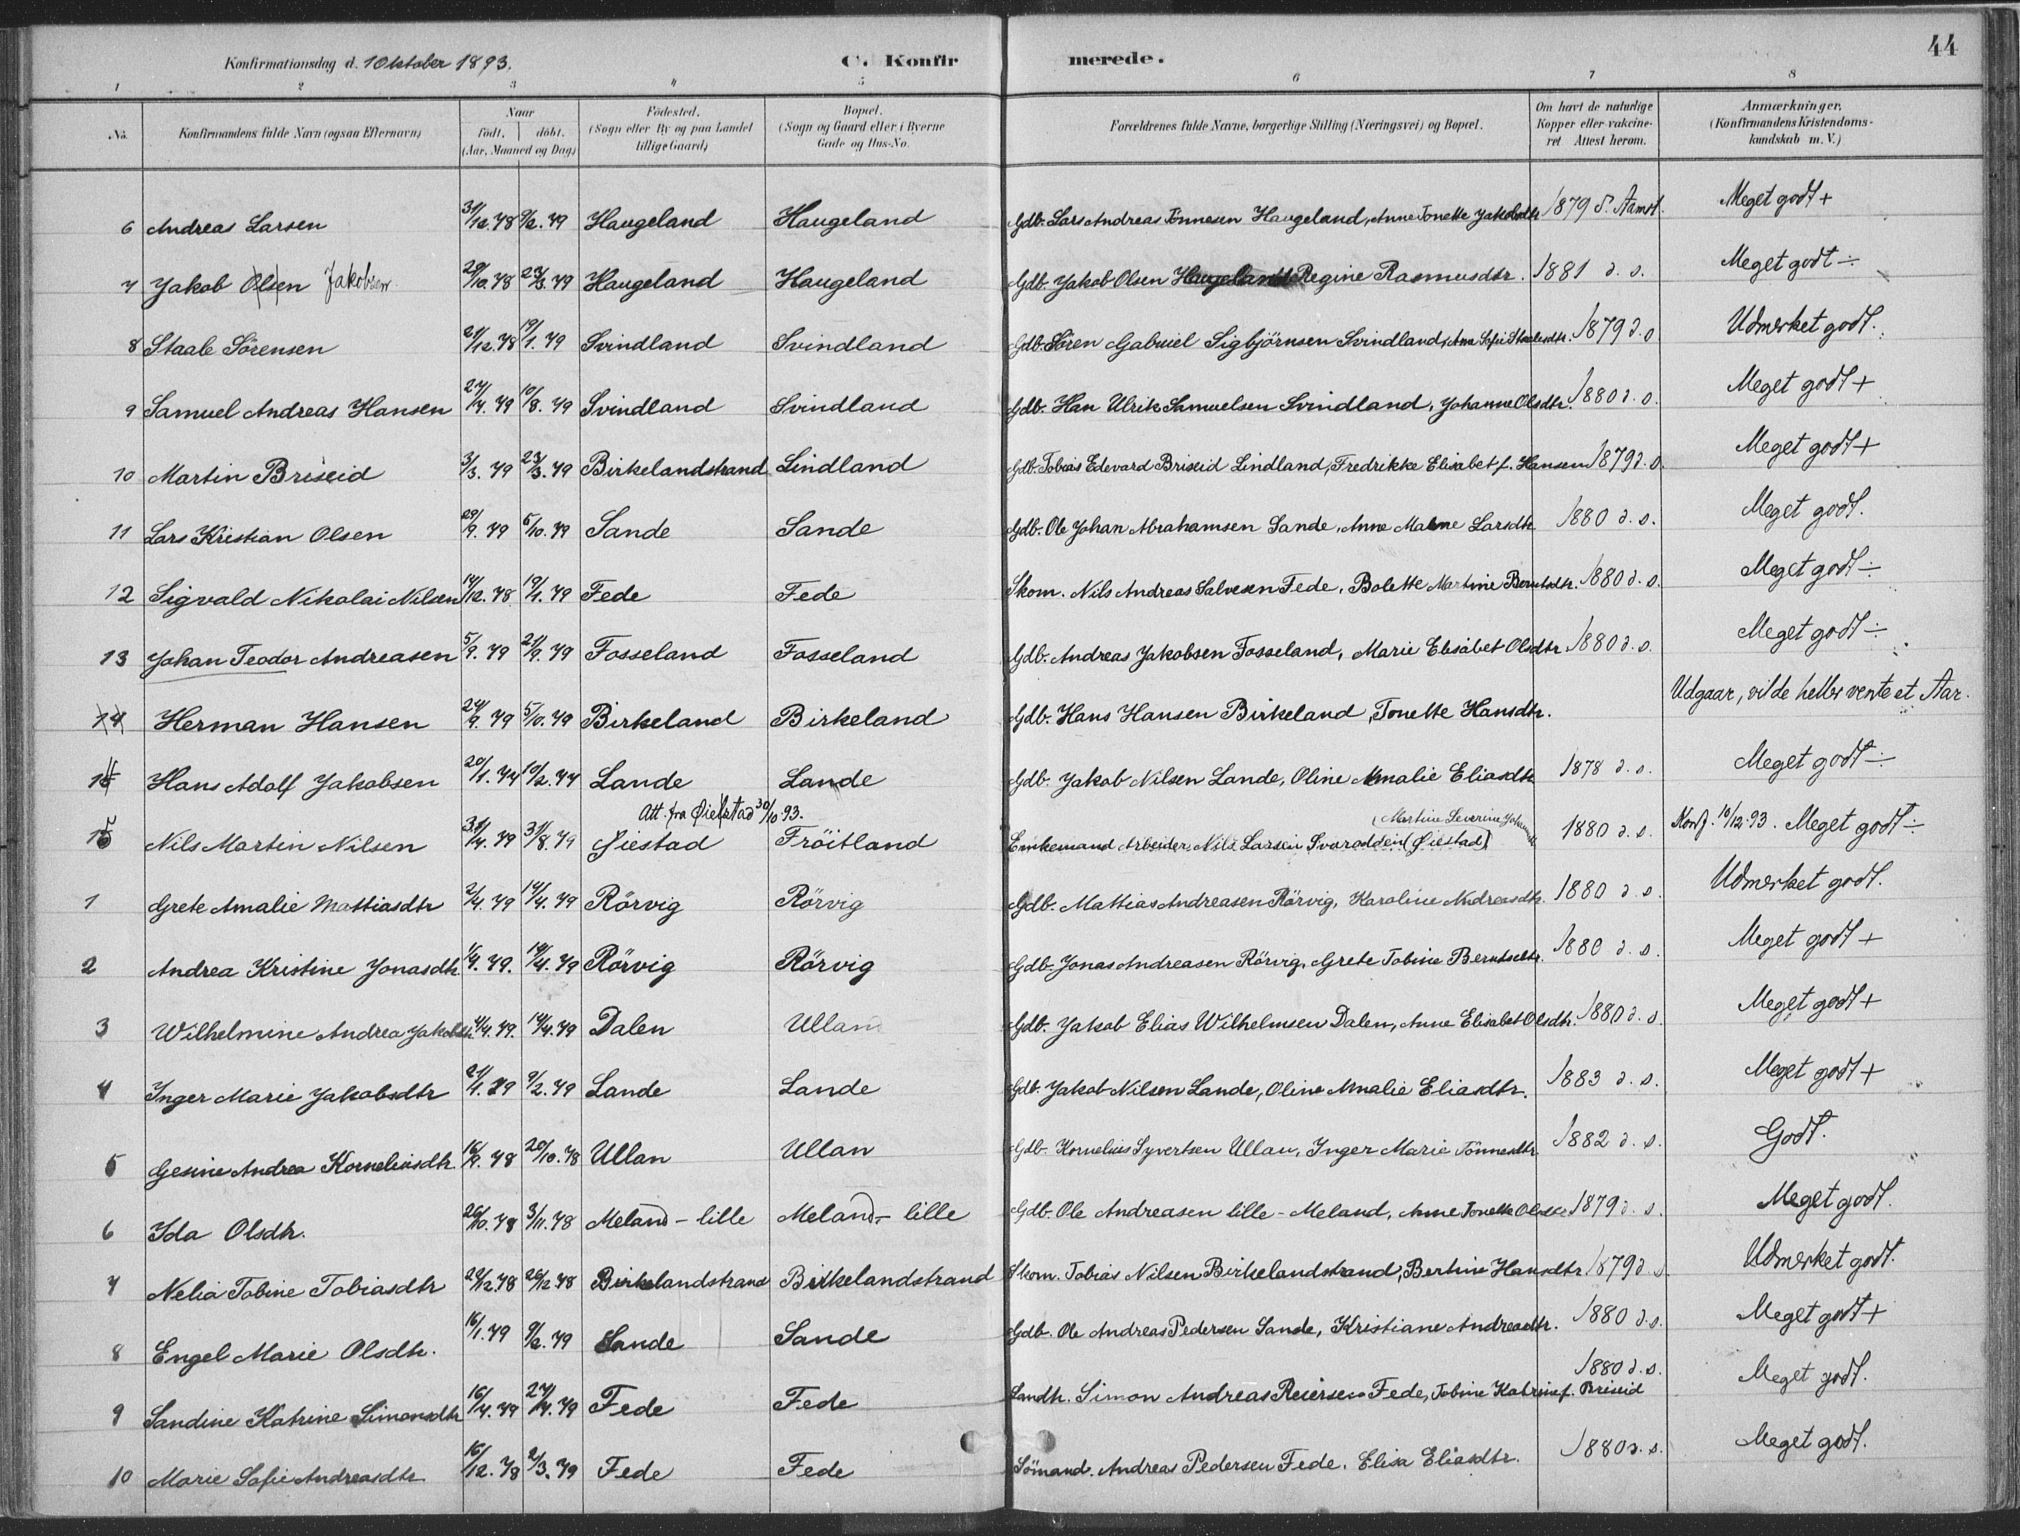 Konfirmationsdag d. 1 Oktober 1893. C. Konfirmerede. 44
1 2 3 4 5 6 7 8
No. Konfirmandens fulde Navn (ogsaa Efternavn) Naar født. døbt. (Aar, Maaned og Dag) Fødested. (Sogn eller By og paa Landet tillige Gaard) Bopæl. (Sogn og Gaard eller i Byerne Gade og Hus-No. Forældrenes fulde Navne, borgerlige Stilling (Næringsvei) og Bopæl. Om havt de naturlige Kopper eller vakcineret Attest herom. Anmærkninger. (Konfirmandens Kristendomskundskab m. V.)
6 Andreas Larsen 31/12.78 9/2.79 Haugeland Haugeland Gdb. Lars Andreas Tønnesen Haugeland, Anne Tonette Jakobsdtr 1879 S. Aamot. Meget godt +
7 Jakob Olsen Jakobsen 29/10.78 23/3.79 Haugeland Haugeland Gdb. Jakob Olsen Haugeland Regine Rasmusdtr. 1881 d. s. Meget godt ÷
8 Staale Sørensen 21/12.78 19/1.79 Svindland Svindland Gdb. Søren Gabriel Sigbjørnsen Svindland, Ana Sofie Staalesdtr. 1879 d. s Udmerket godt.
9 Samuel Andreas Hansen 27/7.79 10/8.79 Svindland Svindland Gdb. Han Ulrik Samuelsen Svindland, Johanne Olsdtr. 1880 d. s. Meget godt +
10 Martin Briseid 3/3.79 23/3.79 Birkelandstrand Lindland Gdb. Tobias Edevard Briseid Lindland, Fredrikke Elisabet f. Hansen 1879 d. s. Meget godt +
11 Lars Kristian Olsen 29/9.79 5/10.79 Sande Sande Gdb. Ole Johan Abrahamsen Sande, Anne Malene Larsdtr 1880 d. s. Meget godt.
12 Sigvald Nikolai Nilsen 14/12.78 19/1.79 Fede Fede Skom. Nils Andreas Salvesen Fede, Bolette Martine Berntsdtr. 1880 d. s. Meget godt ÷
13 Johan Teodor Andreasen 5/9.79 21/9.79 Fosseland Fosseland Gdb. Andreas Jakobsen Fosseland, Marie Elisabet Olsdtr 1880 d. s. Meget godt ÷
14 Herman Hansen 24/9.79 5/10.79 Birkeland Birkeland Gdb. Hans Hansen Birkeland, Tonette Hansdtr. Udgaar, vilde heller vente et Aar.
14 Hans Adolf Jakobsen 20/1.77 19/2.77 Lande Lande Gdb. Jakob Nilsen Lande, Oline Amalie Eliasdtr 1878 d. s. Meget godt ÷
Att. fra Øiestad 30/10 93. (Martine Severine
15 Nils Martin Nilsen 31/8.79 Øiestad Frøitland Enkemand Arbeider Nils Larsen Svaradden (Øiestad) 1880 d. s. Konf. 10/12.93. Meget godt ÷
1 Grete Amalie Mattiasdtr 2/4.79 14/4.79 Rørvig Rørvig Gdb. Mattias Andreasen Rørvig, Karoline Andreasdtr. 1880 d. s. Udmerket godt.
2 Andrea Kristine Jonasdtr 14/4.79 Rørvig Rørvig Gdb. Jonas Andreasen Rørvig, Grete Tobine Berntsdtr. 1880 d. s. Meget godt +
3 Wilhelmine Andrea Jakobsdtr. 4/4.79. 14/4.79 Dalen Ullan Gdb. Jakob Elias Wilhelmsen Dalen, Anne Elisabet Olsdtr. 1880 d. s. Meget godt +
4 Inger Marie Jakobsdtr 21/1.79 9/2.79 Lande Lande Gdb. Jakob Nilsen Lande, Oline Amalie Eliasdtr. 1883 d. s. Meget godt +
5 Gesine Andrea Korneliusdtr 16/9.78 20/10.78 Ullan Ullan Gdb. Kornelius Syvertsen Ullan, Inger Marie Tønnesdtr. 1882 d. s. Godt.
6 Ida Olsdtr. 26/10.78 3/11.78 Meland - lille Meland - lille Gdb. Ole Andreasen lille - Meland, Anne Tonette Olsdtr 1879 d. s. Meget godt.
7 Nelia Tobine Tobiasdtr 26/12.78 Birkelandstrand Birkelandstrand Skom. Tobias Nilsen Birkelandstrand, Bertine Hansdtr 1879 d. s. Udmerket godt.
8 Engel Marie Olsdtr. 16/1.79 9/2.79 Sande Sande Gdb. Ole Andreas Pedersen Sande, Kristiane Andreasdtr. 1880 d. s. Meget godt +
9 Sandine Katrine Simonsdtr 16/4.79 27/4.79 Fede Fede Landh. Simon Andreas Reiersen Fede, Tobine Katrine f. Briseid 1880 d. s. Meget godt.
10 Marie Sofie Andreasdtr 16/12.78 2/3.79 Fede Fede Sømand. Andreas Pedersen Fede, Elisa Eliasdtr. 1880 d. s. Meget godt.